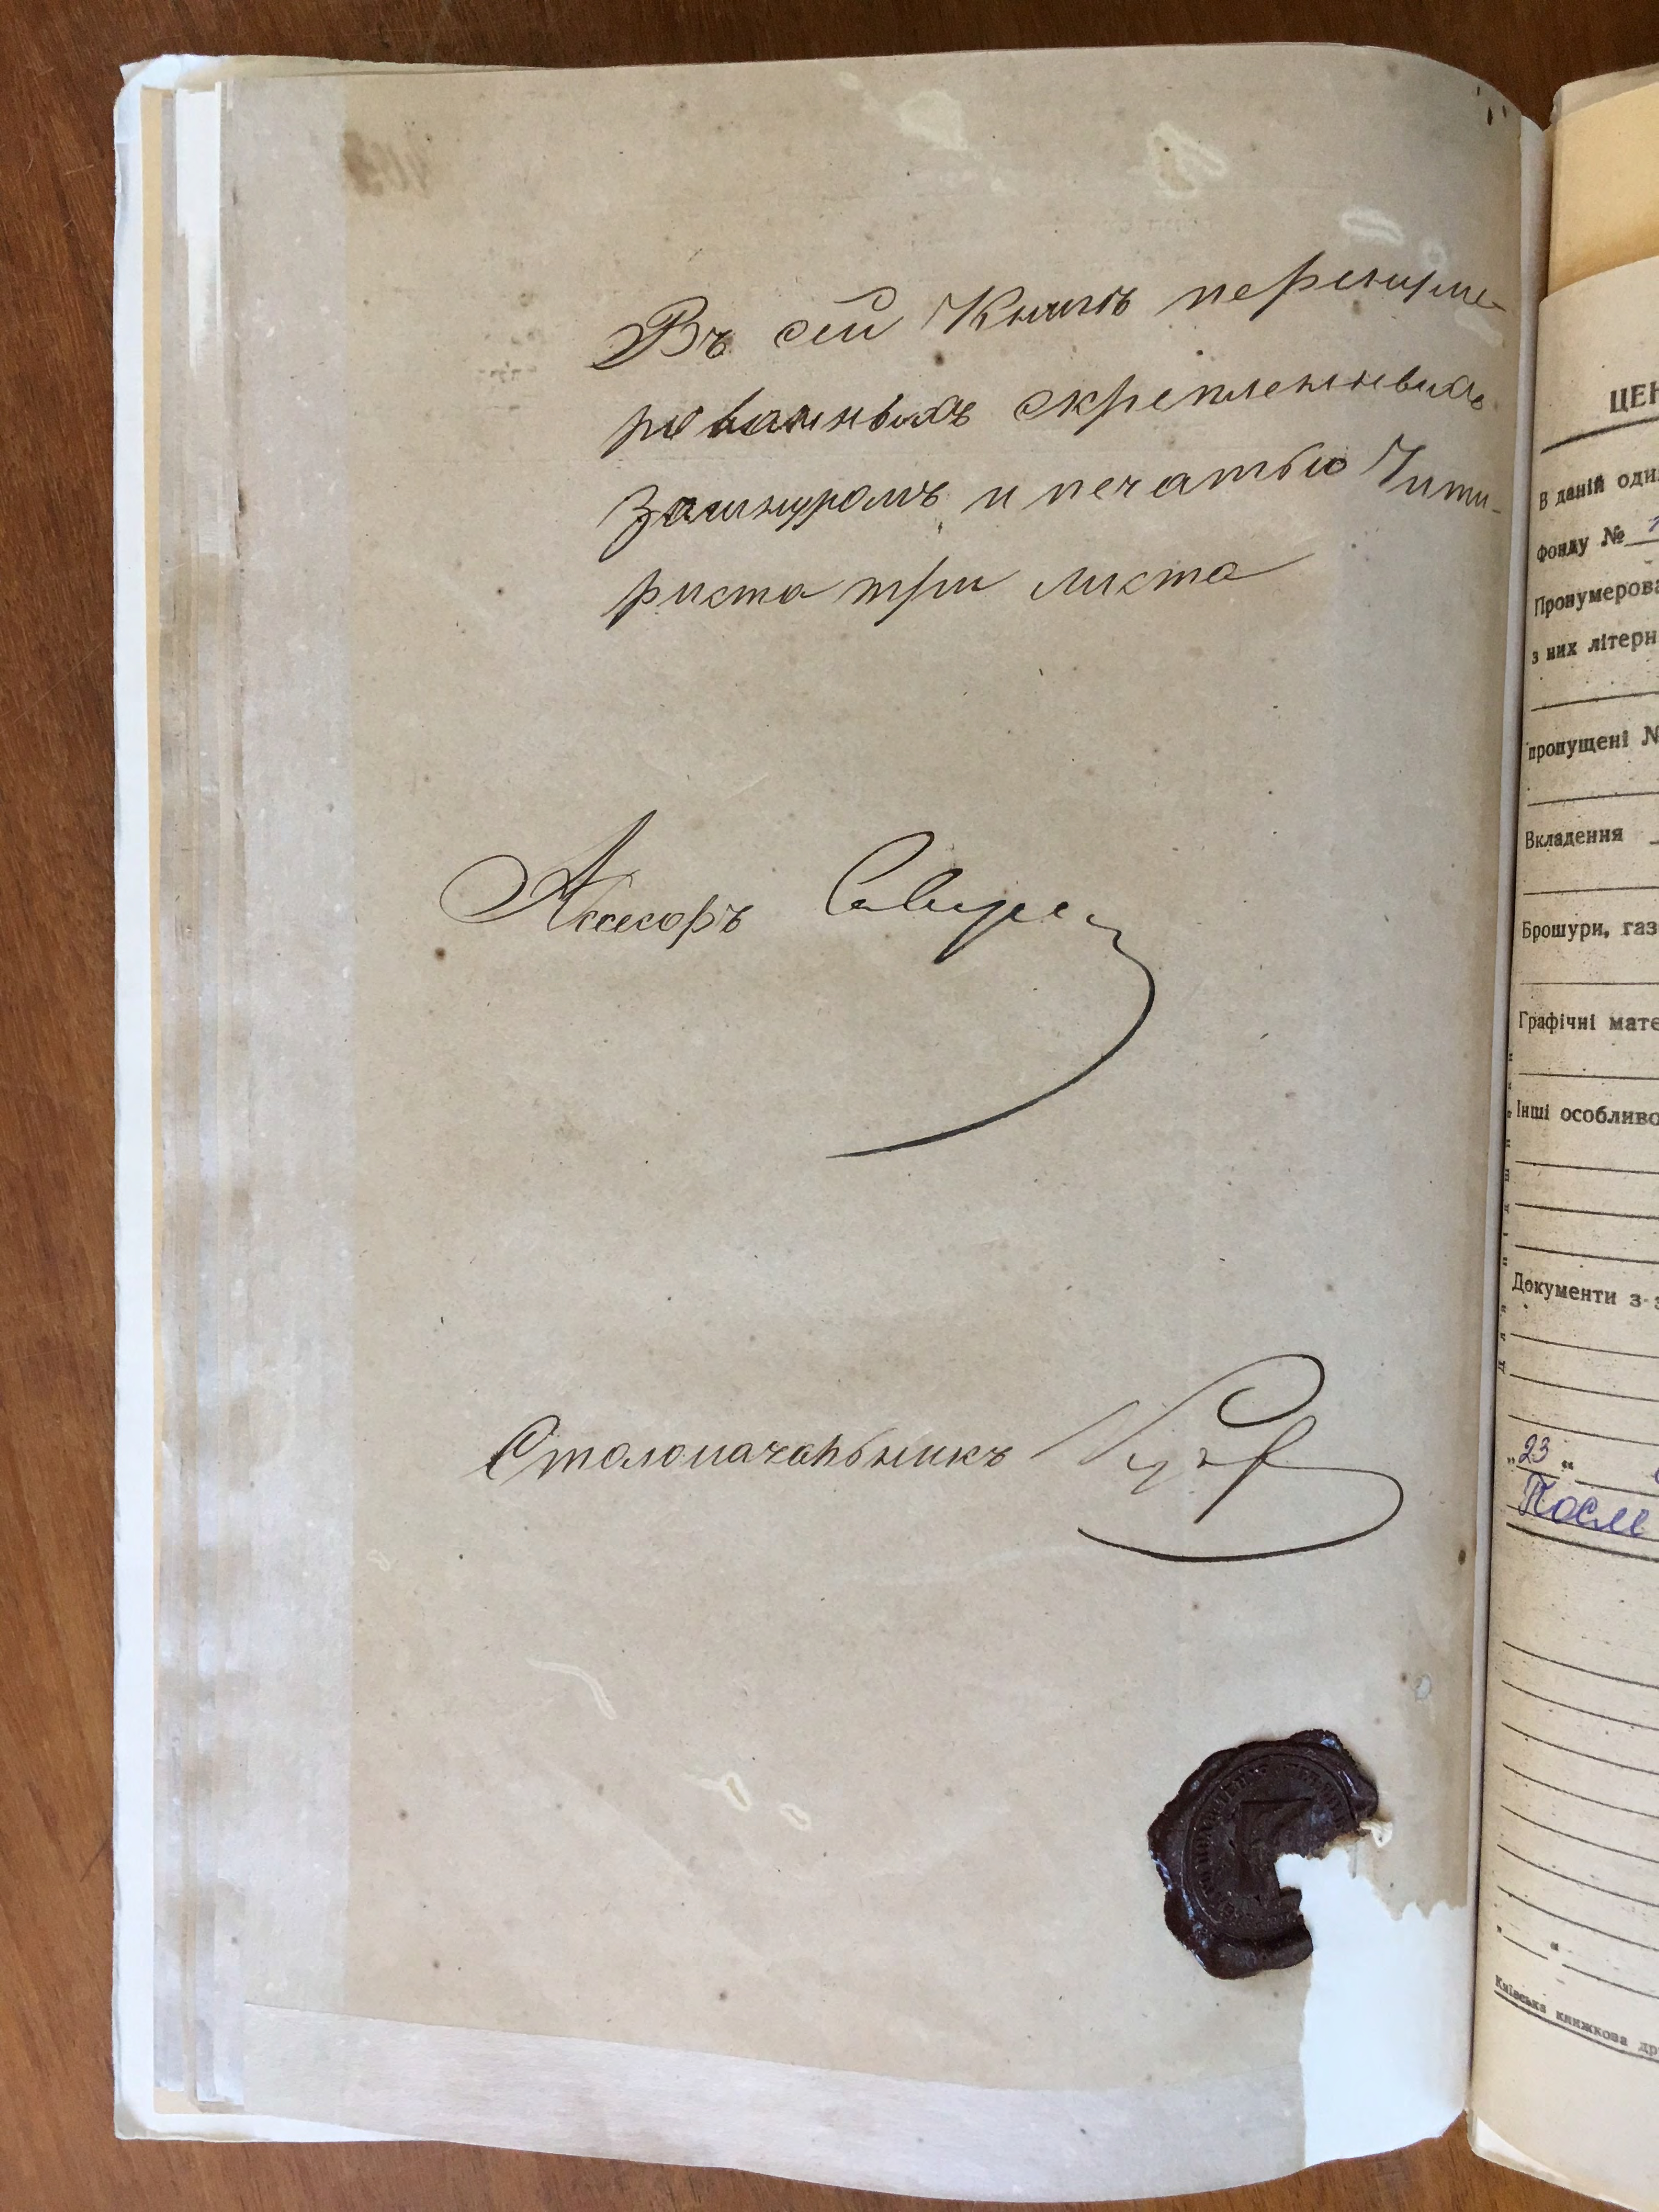 Въ сей Книгѣ перенуме-
рованныхъ скрепленныхъ
зашнуромъ и печатью Чети-
риста три листа
Ассесоръ
Столоначальникъ
ЦЕН
В даній оди
фонду №
Пронумерова
з них літерн
пропущені №
Вкладення
Брошури, газ
Графічні мате
Інші особливо
Документи з з
„ 23 “
После
Київська книжкова др